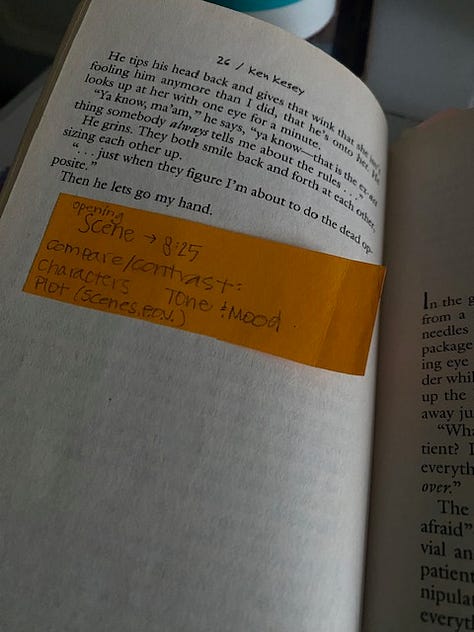 26 / Ken Kesey
He tips his head back and gives that wink that she isn't
fooling him anymore than I did, that he's onto her. He
looks up at her with one eye for a minute.
"Ya know, ma'am," he says, "ya know—that is the ex-act
thing somebody always tells me about the rules . . ."
He grins. They both smile back and forth at each other,
sizing each other up.
". . . just when they figure I'm about to do the dead op-
posite."
Then he lets go my hand.
opening
Scene → 8:25
compare/contrast:
Characters Tone & Mood
Plot (scenes, P.O.V.)
In the g
from a
needles
package
ing eye
der whil
up the
away jus
"Wha
tient? I
everyth
over."
The
afraid"
vial an
patient
nipula
everyt